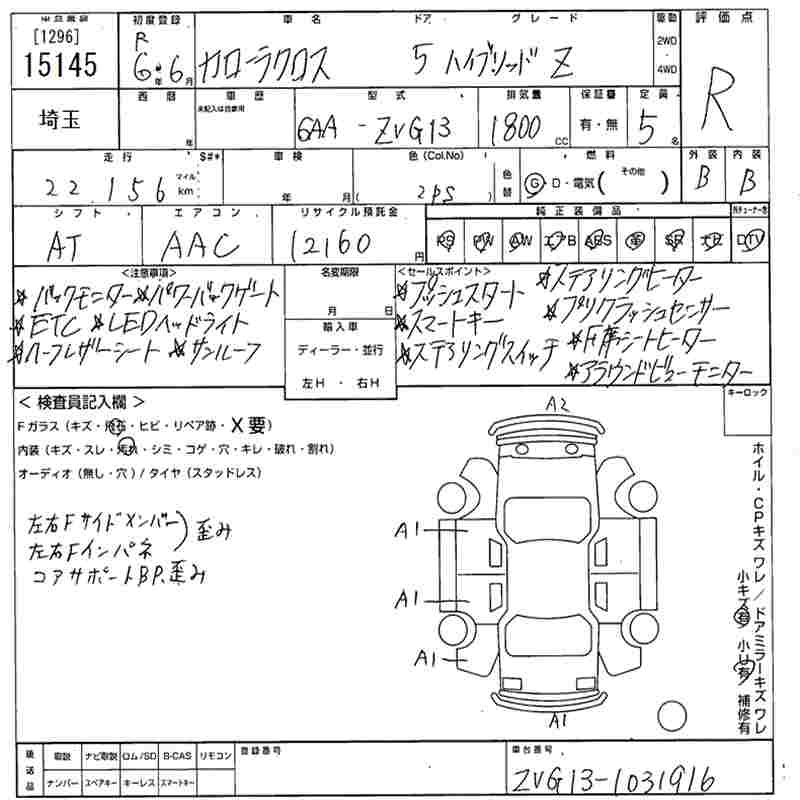 [1296]
15145
初度登録
R
6年6月
車名
カローラクロス
ドア
5
グレード
ハイブリッドZ
駆動
2WD
・
4WD
評価点
R
埼玉
西暦
年
車歴
未記入は自家用
型式
6AA - ZVG13
排気量
1800cc
保証書
有・無
定員
5名
走行
22,156
マイル
km
$#*
車検
年 月
色(Col.No)
( 2PS )
色替
燃料
G・D・電気( その他 )
外装
B
内装
B
シフト
AT
エアコン
AAC
リサイクル預託金
12160円
純正装備品
PS PW AW エアB ABS 革 SR ナビ
DTV
<注意事項>
☆バックモニター☆パワーバックゲート
☆ETC ☆LEDヘッドライト
☆ハーフレザーシート ☆サンルーフ
名変期限
月 日
輸入車
ディーラー・並行
左H ・ 右H
<セールスポイント>
☆プッシュスタート
☆スマートキー
☆ステアリングスイッチ
☆ステアリングヒーター
☆プリクラッシュセンサー
☆F席シートヒーター
☆アラウンドビューモニター
キーロック
<検査員記入欄>
Fガラス(キズ・飛石・ヒビ・リペア跡・X要)
内装(キズ・スレ・汚れ・シミ・コゲ・穴・キレ・破れ・割れ)
オーディオ(無し・穴)/タイヤ(スタッドレス)
左右Fサイドメンバー
左右Fインパネ
)歪み
コアサポートBP、歪み
A2
A1
A1
A1
A1
ホイル・CPキズワレ/ドアミラーキズワレ
小キズ有 小U有 補修有
後送品
取説 ナビ取説 ロム/SD B-CAS リモコン
ナンバー スペアキー キーレス スマートキー
登録番号
車台番号
ZVG13-1031916